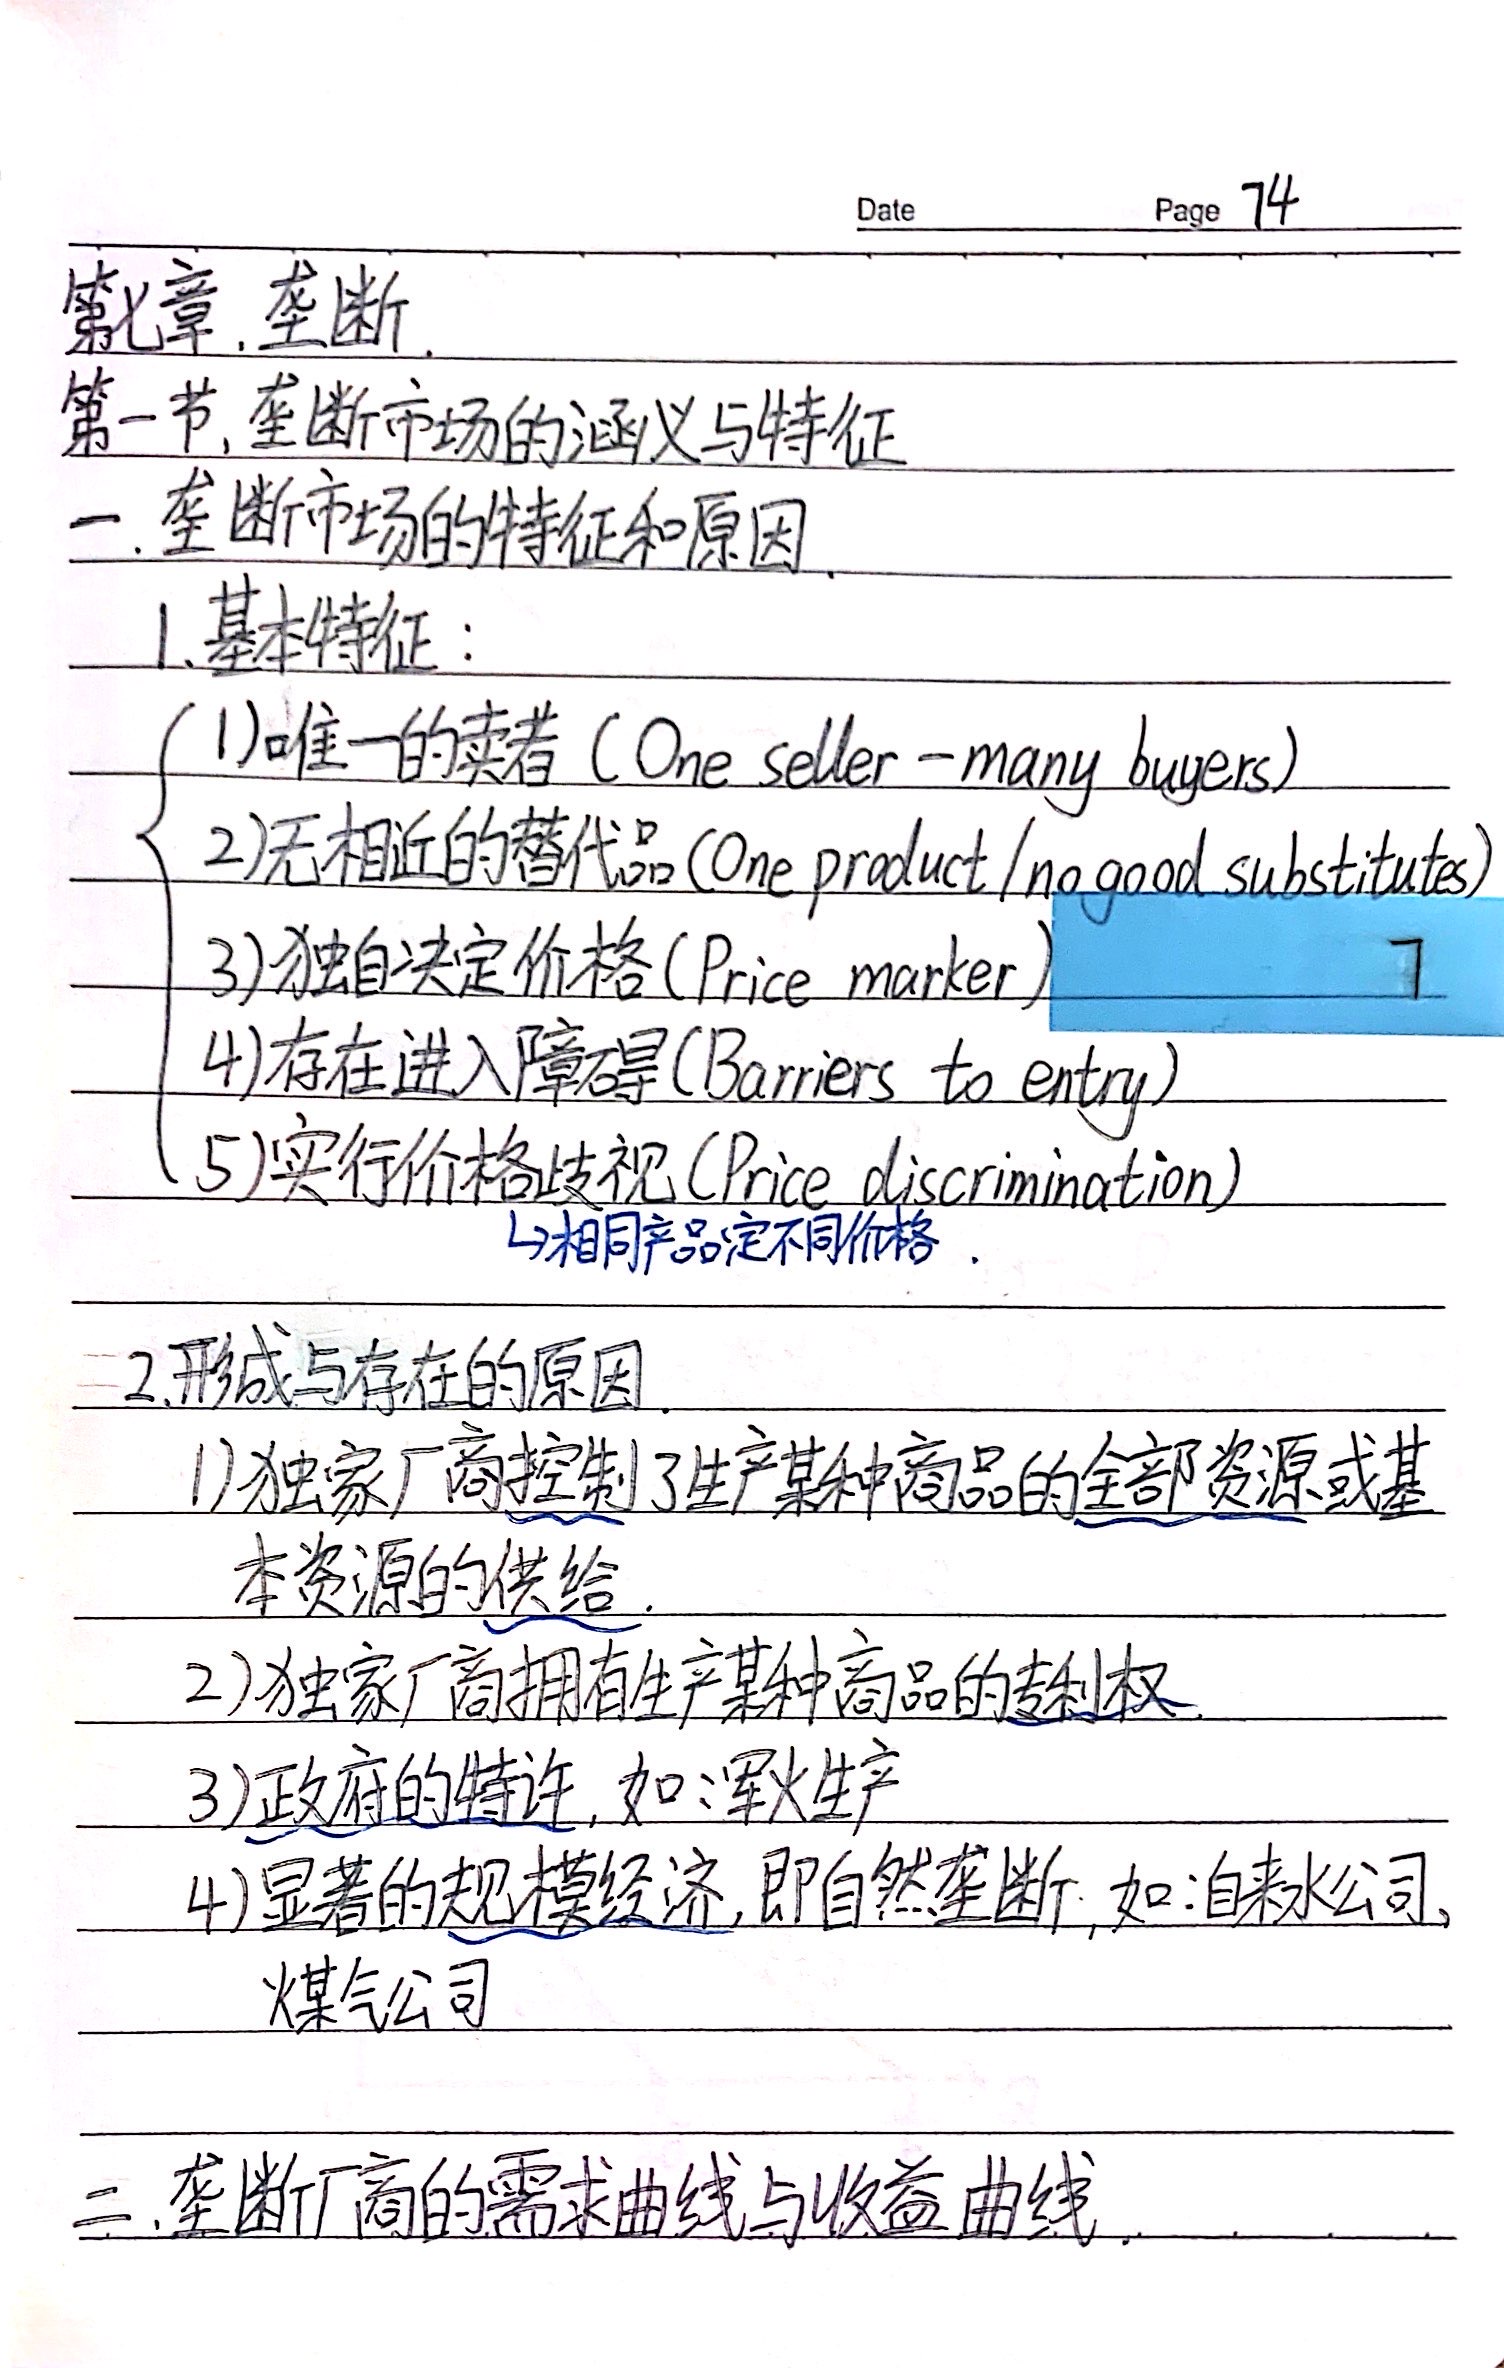 Date Page 74
第七章.垄断.
第一节.垄断市场的涵义与特征
一.垄断市场的特征和原因.
1.基本特征:
1)唯一的卖者(One seller-many buyers)
2)无相近的替代品(One product/no good substitutes)
3)独自决定价格(Price marker) 7
4)存在进入障碍(Barriers to entry)
5)实行价格歧视(Price discrimination)
↳相同产品定不同价格.
2.形成与存在的原因.
1)独家厂商控制了生产某种商品的全部资源或基
本资源的供给.
2)独家厂商拥有生产某种商品的专利权.
3)政府的特许,如:军火生产
4)显著的规模经济,即自然垄断,如:自来水公司、
煤气公司
二.垄断厂商的需求曲线与收益曲线.